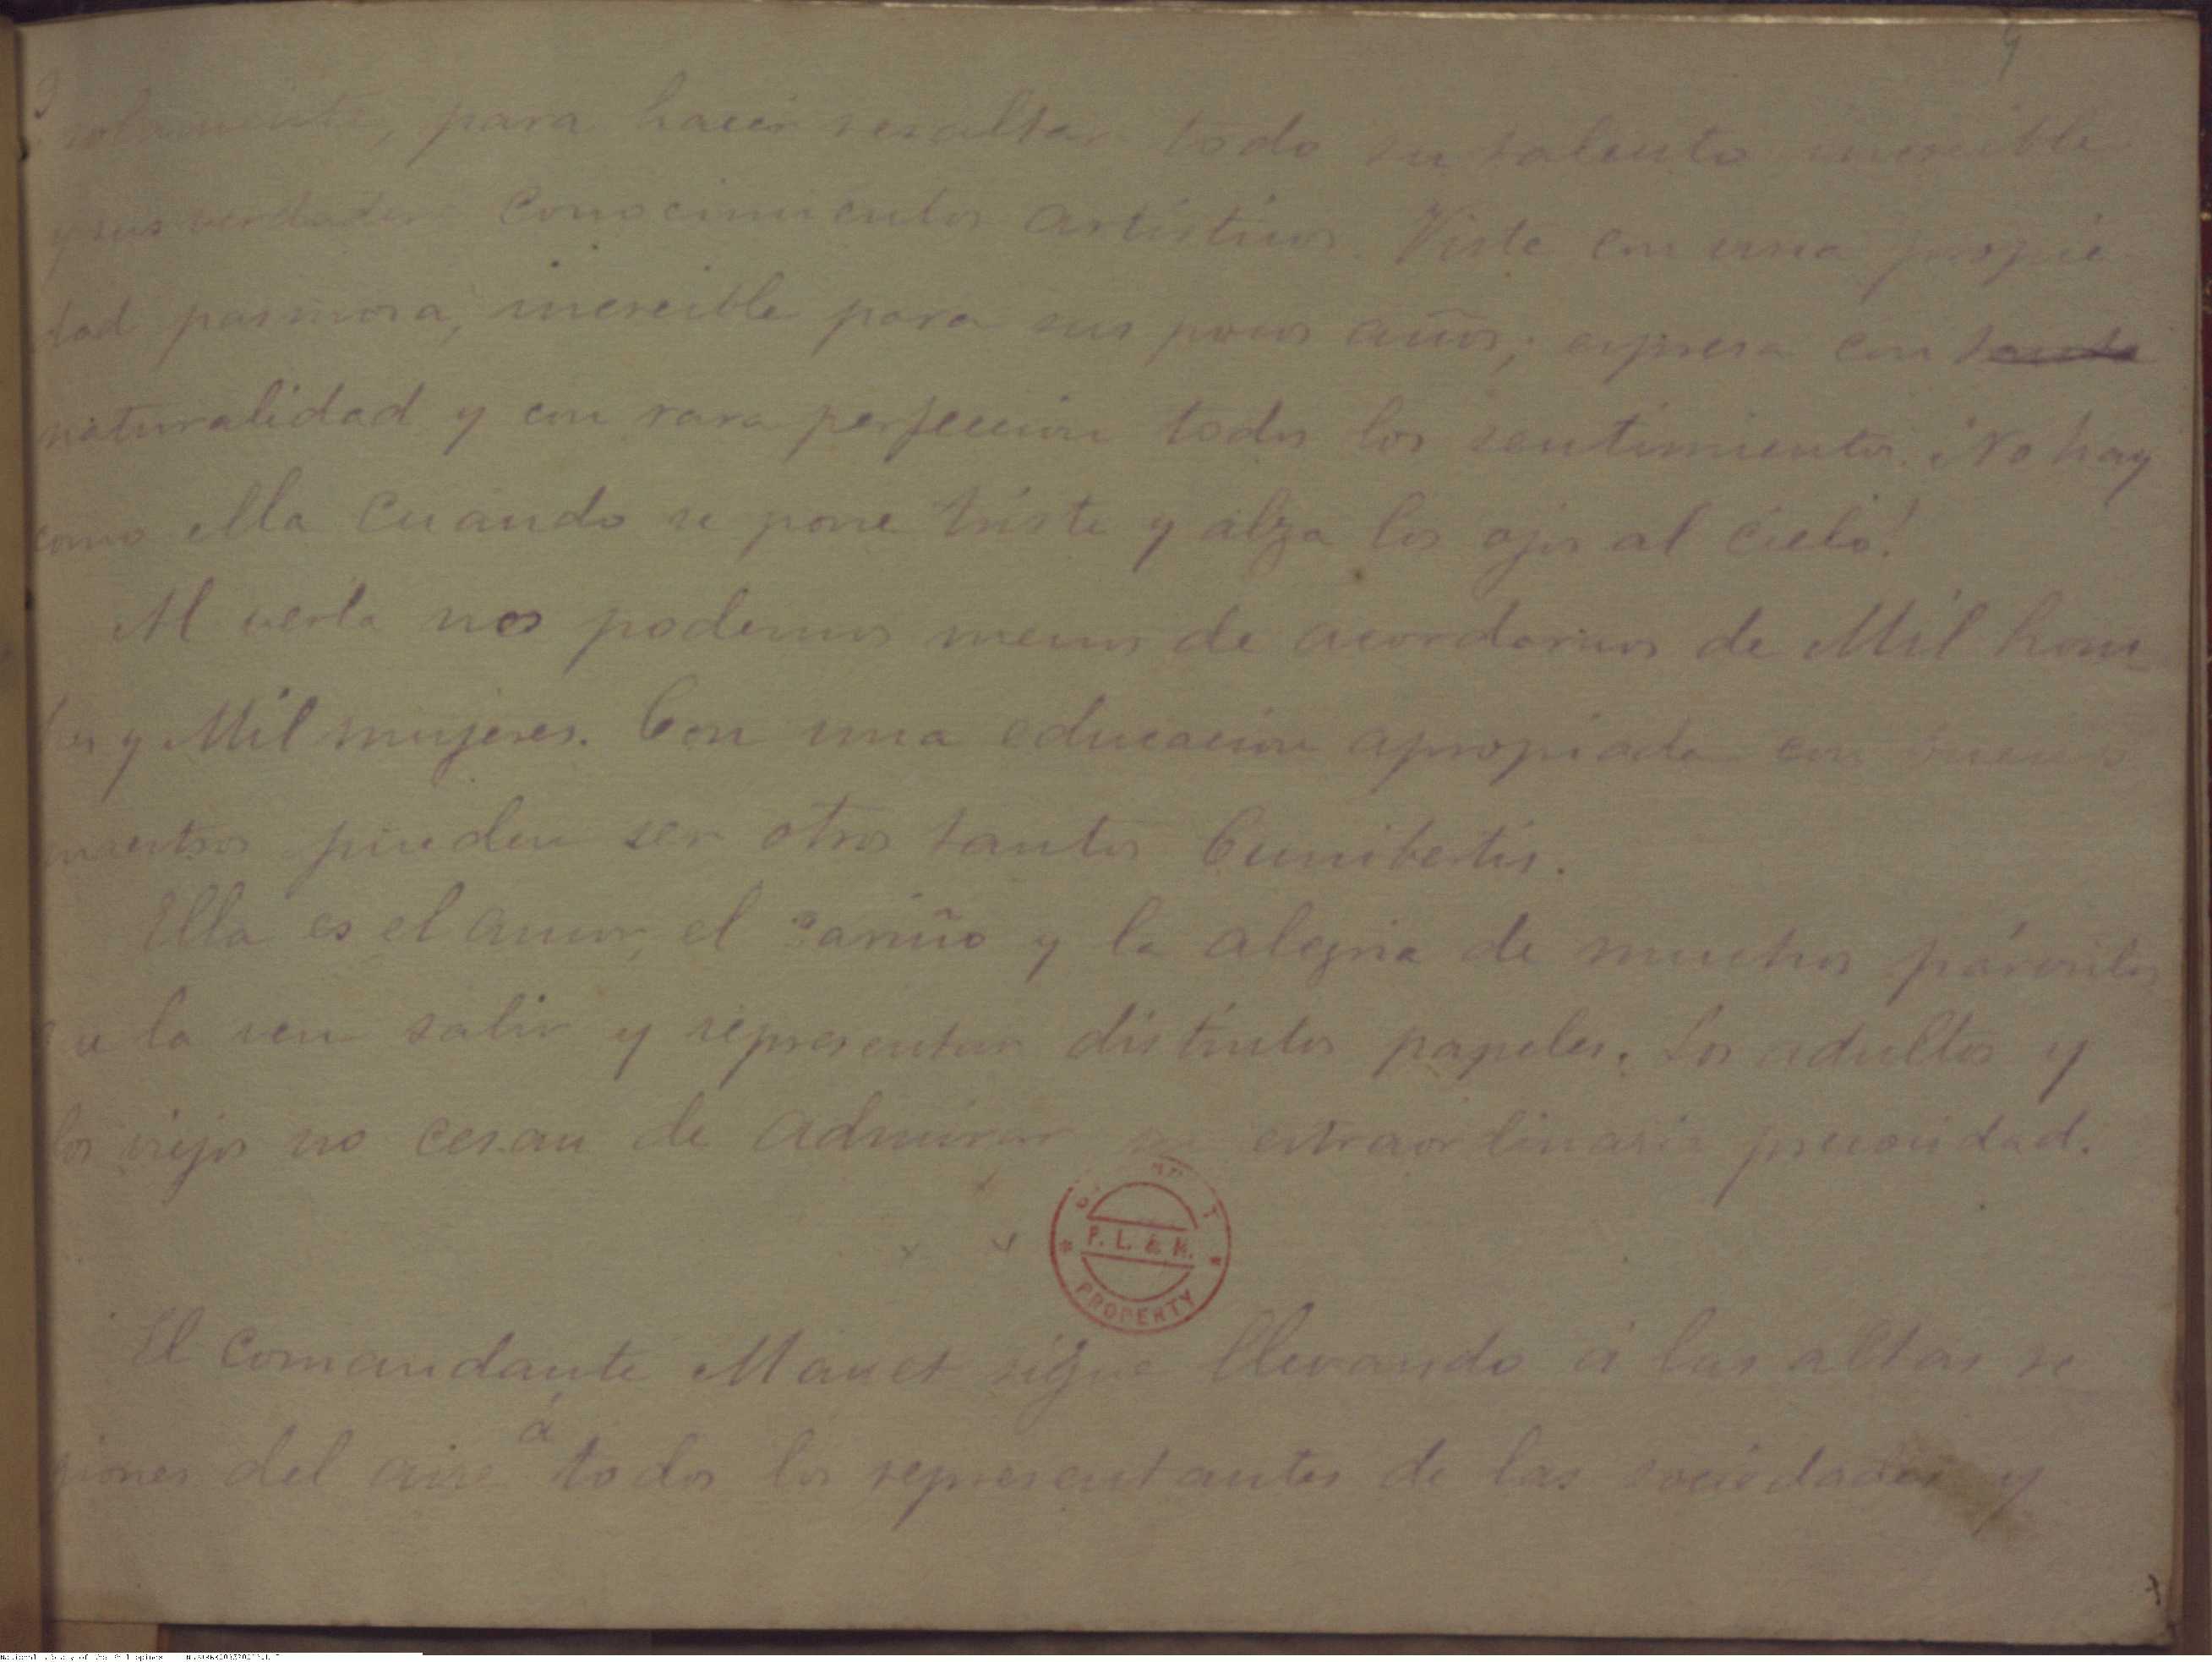 9
solamente, para hacer resaltar todo su talento increible
y sus verdaderos conocimientos artísticos. Viste con una propie
dad pasmosa, increible para sus pocos años; expresa con tanta
naturalidad y con rara perfeccion todos los sentimientos. ¡No hay
como ella cuando se pone triste y alza los ojos al cielo!
Al verla nos podemos menos de acordarnos de Mil hom
bres y Mil mujeres. Con una educacion apropiada con buenos
maestros pueden ser otros tantos Cunibertis.
Ella es el amor, el cariño y la alegria de muchos
que la ven salir y representar distintos papeles. Los adultos y
los viejos no cesan de admirar su extraordinaria precocidad.
P. L. & M.
PROPERTY
El Comandante Mauet sigue llevando á las altas re
giones del aire á todos los representantes de las sociedades y